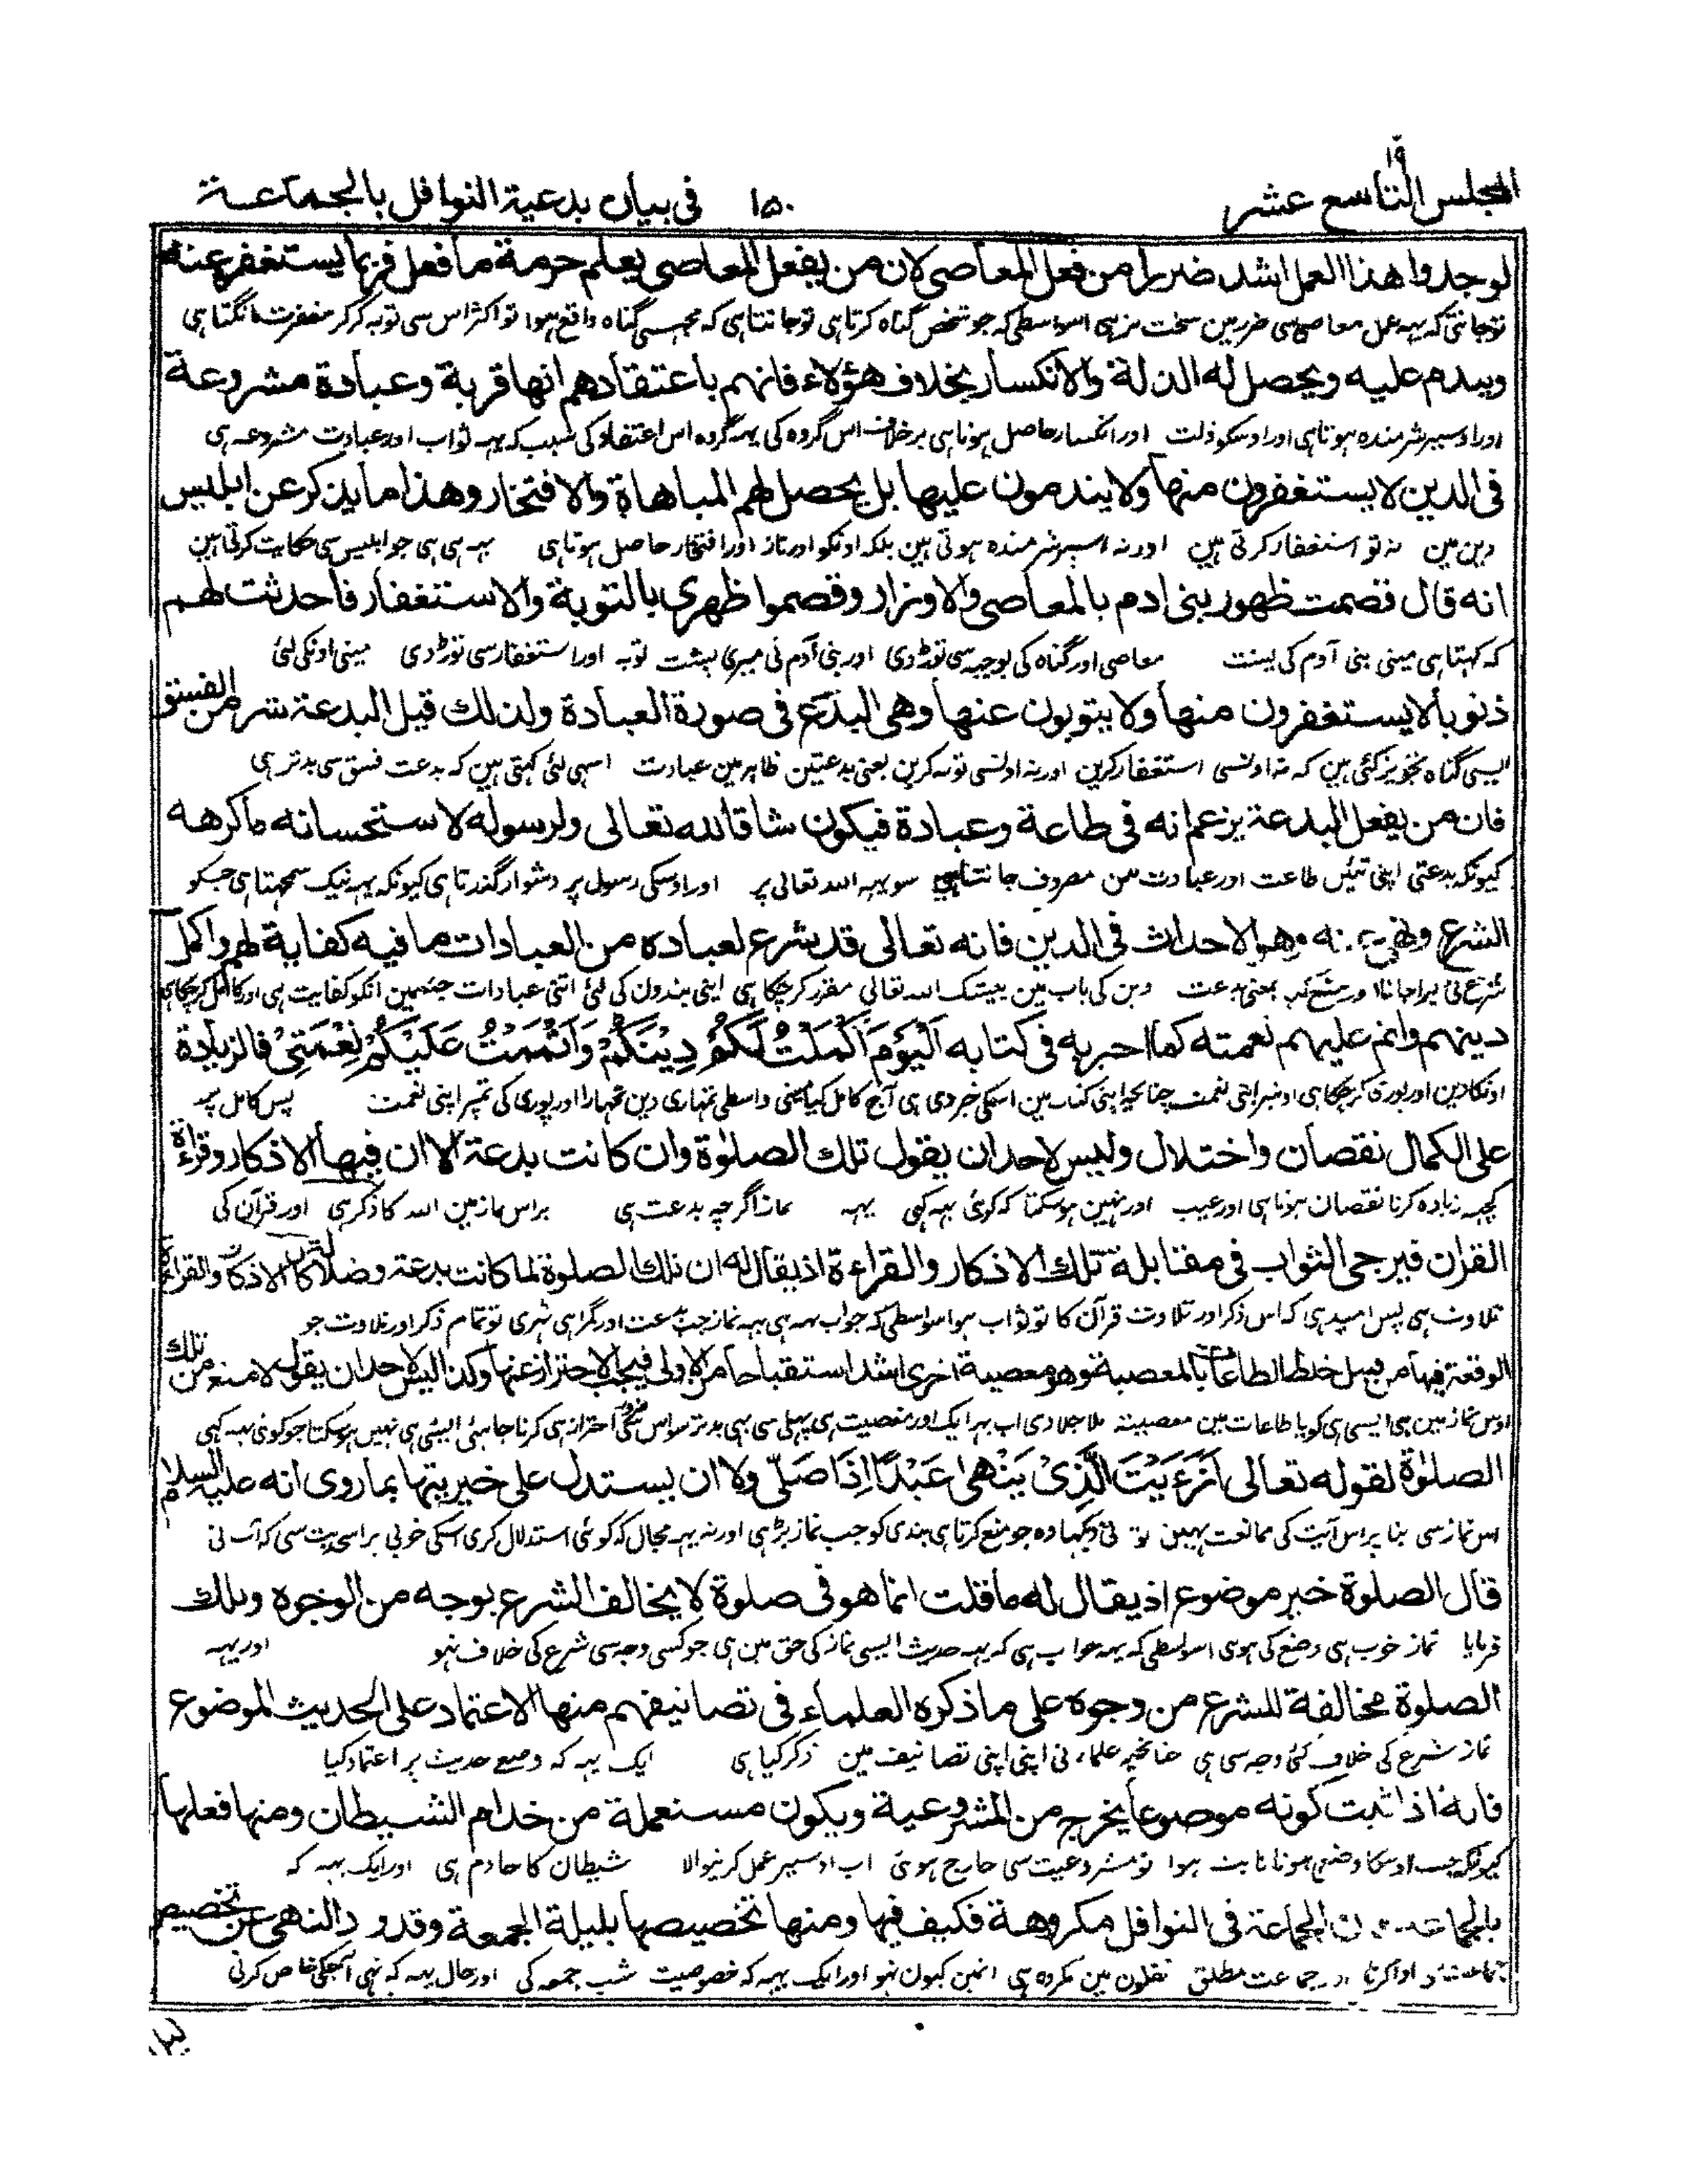 المجلس التاسع عشر ١٩
١٥٠
في بيان بدعية النوافل بالجماعة
لوجدوا هذا العمل اشد ضررا من فعل المعاصي لان من يفعل المعاصي يعلم حرمة ما فعل فربما يستغفر عنه
تو جانتی کہ یہہ عمل معاصی سی ضرر مین سخت تر ہی اسواسطی کہ جو شخص گناہ کرتا ہی تو جانتا ہی کہ مجہسی گناہ واقع ہوا تو اکثر اس سی توبہ کر کر مغفرت مانگتا ہی
ويندم عليه ويحصل له الذلة والانكسار بخلاف هؤلاء فانهم باعتقادهم انها قربة وعبادة مشروعة
اور اوسپر شرمندہ ہوتا ہی اور اوسکو ذلت اور انکسار حاصل ہوتا ہی برخلاف اس گروہ کی یہہ گروہ اس اعتقاد کی سبب کہ یہہ ثواب اور عبادت مشروعہ ہی
في الدين لا يستغفرون منها ولا يندمون عليها بل يحصل لهم المباهاة والافتخار وهذا ما يذكر عن ابليس
دین مین نہ تو استغفار کرتی ہین اور نہ اسپر شرمندہ ہوتی ہین بلکہ اونکو اور ناز اور افتخار حاصل ہوتا ہی یہہ ہی ہی جو ابلیس سی حکایت کرتی ہین
انه قال قصمت ظهور بني ادم بالمعاصي والاوزار وقصموا ظهري بالتوبة والاستغفار فاحدثت لهم
کہ کہتا ہی مینی بنی آدم کی پشت معاصی اور گناہ کی بوجہہ سی توڑ دی اور بنی آدم نی میری پشت توبہ اور استغفار سی توڑ دی مینی اونکی لئی
ذنوبا لا يستغفرون منها ولا يتوبون عنها وهي البدع في صورة العبادة ولذلك قيل البدعة شر من الفسق
ایسی گناہ تجویز کئی ہین کہ نہ اونسی استغفار کرین اور نہ اونسی توبہ کرین یعنی بدعتین ظاہر مین عبادت اسی لئی کہتی ہین کہ بدعت فسق سی بدتر ہی
فان من يفعل البدعة يزعم انه في طاعة وعبادة فيكون شاقا لله تعالى ولرسوله لاستحسانه ما كرهه
کیونکہ بدعتی اپنی تئین طاعت اور عبادت مین مصروف جانتا ہی سو یہہ اللہ تعالی پر اور اوسکی رسول پر دشوار گذرتا ہی کیونکہ یہہ نیک سمجہتا ہی جسکو
الشرع ونهى عنه وهو الاحداث في الدين فانه تعالى قد شرع لعباده من العبادات ما فيه كفاية لهم واكمل
شرع نی برا جانا اور منع کیا یعنی بدعت دین کی باب مین بیشک اللہ تعالی مقرر کر چکا ہی اپنی بندون کی لئی اتنی عبادات جنمین انکو کفایت ہی اور کامل کر چکا ہی
دينهم واتم عليهم نعمته كما اخبر به في كتابه اَلْيَوْمَ اَكْمَلْتُ لَكُمْ دِيْنَكُمْ وَاَتْمَمْتُ عَلَيْكُمْ نِعْمَتِيْ فالزيادة
اونکا دین اور پوری کر چکا ہی اونپر اپنی نعمت چنانچہ اپنی کتاب مین اسکی خبر دی ہی آج کامل کیا مینی واسطی تمہاری دین تمہارا اور پوری کی تمپر اپنی نعمت پس کامل پر
على الكمال نقصان واختلال وليس لاحد ان يقول تلك الصلوة وان كانت بدعة الا ان فيها الاذكار وقراءة
کچہہ زیادہ کرنا نقصان ہوتا ہی اور عیب اور نہین ہو سکتا کہ کوئی یہہ کہی یہہ نماز اگرچہ بدعت ہی پر اس نماز مین اللہ کا ذکر ہی اور قرآن کی
القران فيرجى الثواب في مقابلة تلك الاذكار والقراءة اذ يقال له ان تلك الصلوة لما كانت بدعة وضلالة كان الاذكار والقراءة
تلاوت ہی پس امید ہی کہ اس ذکر اور تلاوت قرآن کا تو ثواب ہو اسواسطی کہ جواب یہہ ہی یہہ نماز جب بدعت اور گمراہی ٹہری تو تمام ذکر اور تلاوت جو
الوقعة فيها من قبيل خلط الطاعات بالمعصية وهو معصية اخرى اشد استقباحا من الاولى فيجب الاحتراز عنها وكذا ليس لاحد ان يقول لا منع من تلك
اوس نماز مین ہی ایسی ہی گویا طاعات مین معصیت ملا جلا دی اب یہہ ایک اور معصیت ہی پہلی سی بہی بدتر سو اس سی احتراز ہی کرنا چاہئی ایسی ہی نہین ہو سکتا جو کوئی یہہ کہی
الصلوة لقوله تعالى اَرَءَيْتَ الَّذِيْ يَنْهٰى عَبْدًا اِذَا صَلّٰى ولا ان يستدل على خيريتها بما روي انه عليه السلام
اس نماز سی بنا بر اس آیت کی ممانعت نہین تو نی دیکہا وہ جو منع کرتا ہی بندی کو جب نماز پڑہی اور نہ یہہ مجال کہ کوئی استدلال کری اسکی خوبی پر اس حدیث سی کہ آپ نی
قال الصلوة خير موضوع اذ يقال له ما قلت انما هو في صلوة لا يخالف الشرع بوجه من الوجوه وتلك
فرمایا نماز خوب ہی وضع کی ہوئی اسواسطی کہ یہہ جواب ہی کہ یہہ حدیث ایسی نماز کی حق مین ہی جو کسی وجہ سی شرع کی خلاف نہو اور یہہ
الصلوة مخالفة للشرع من وجوه على ما ذكره العلماء في تصانيفهم منها الاعتماد على الحديث الموضوع
نماز شرع کی خلاف کئی وجہ سی ہی چنانچہ علماء نی اپنی اپنی تصانیف مین ذکر کیا ہی ایک یہہ کہ وضعی حدیث پر اعتماد کیا
فانه اذا ثبت كونه موضوعا يخرج من المشروعية ويكون مستعمله من خدام الشيطان ومنها فعلها
کیونکہ جب اوسکا وضعی ہونا ثابت ہوا تو مشروعیت سی خارج ہوئی اب اوسپر عمل کرنیوالا شیطان کا خادم ہی اور ایک یہہ کہ
بالجماعة الجماعة في النوافل مكروهة فكيف فيها ومنها تخصيصها بليلة الجمعة وقد ورد النهي عن تخصيص
ادا کرنا اور جماعت مطلق نفلون مین مکروہ ہی انمین کیون نہو اور ایک یہہ کہ خصوصیت شب جمعہ کی اور حال یہہ کہ نہی خاص کرنی